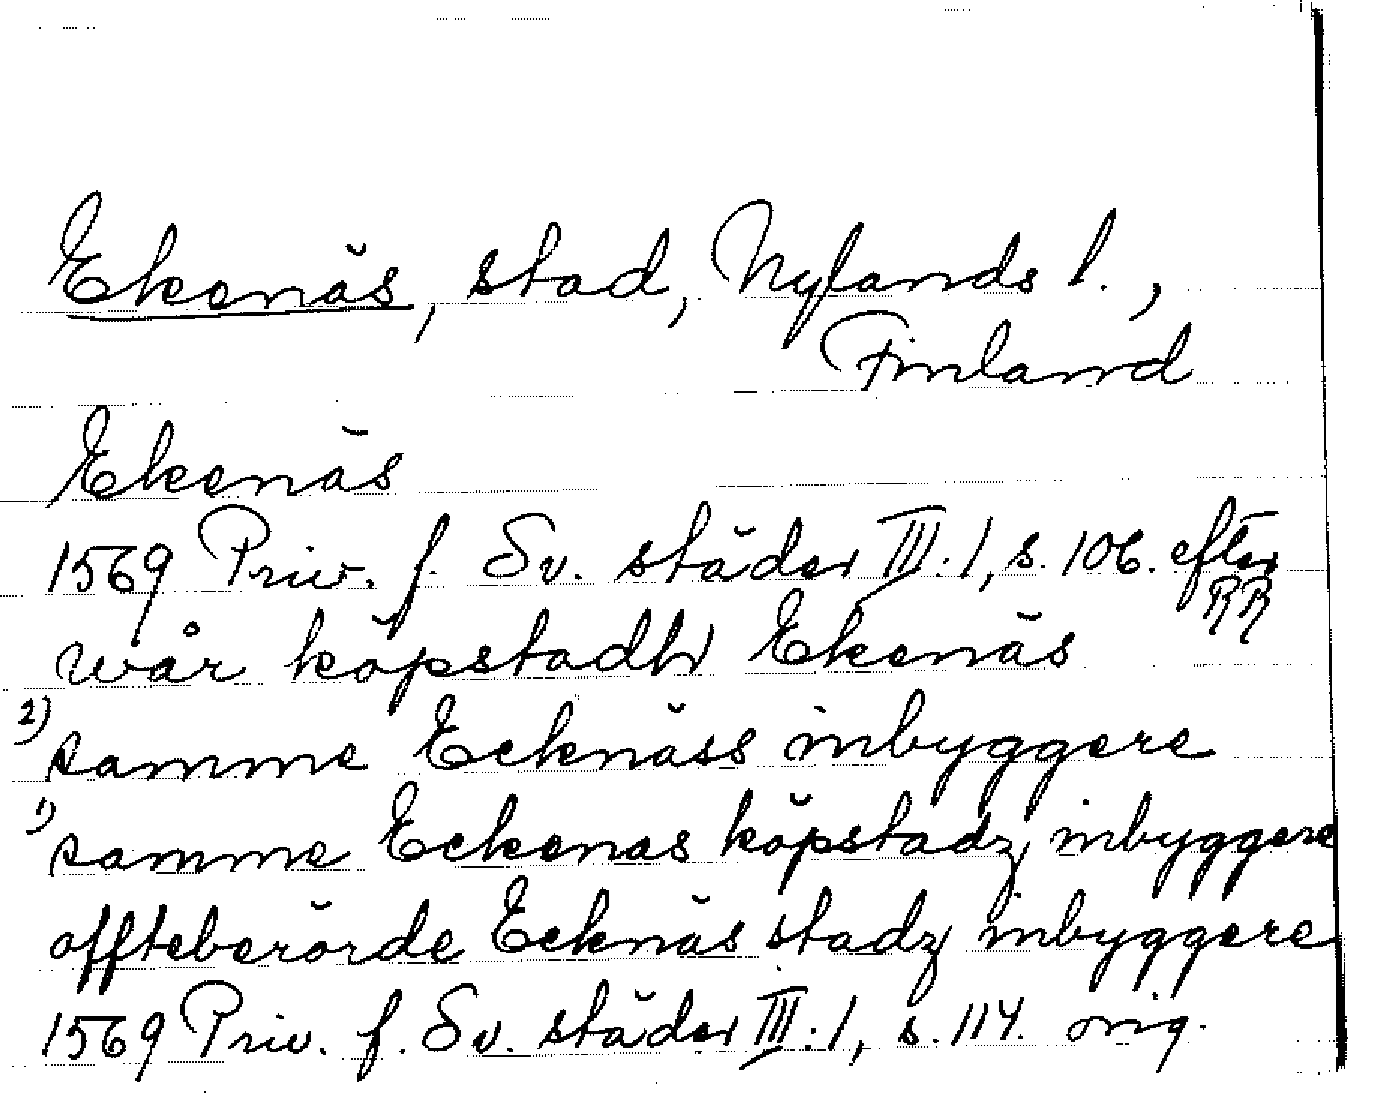 Ekenäs, stad, Nylands l.,
Finland
Ekenäs
1569 Priv. f. Sv. städer III:1, s. 106. efter
RR
wår köpstadh Ekenäs
2) samme Ecknäss inbyggere
1) samme Eckenas köpstadz inbyggere
offteberörde Ecknäs stadz inbyggere
1569 Priv. f. Sv. städer III:1, s. 114. orig.